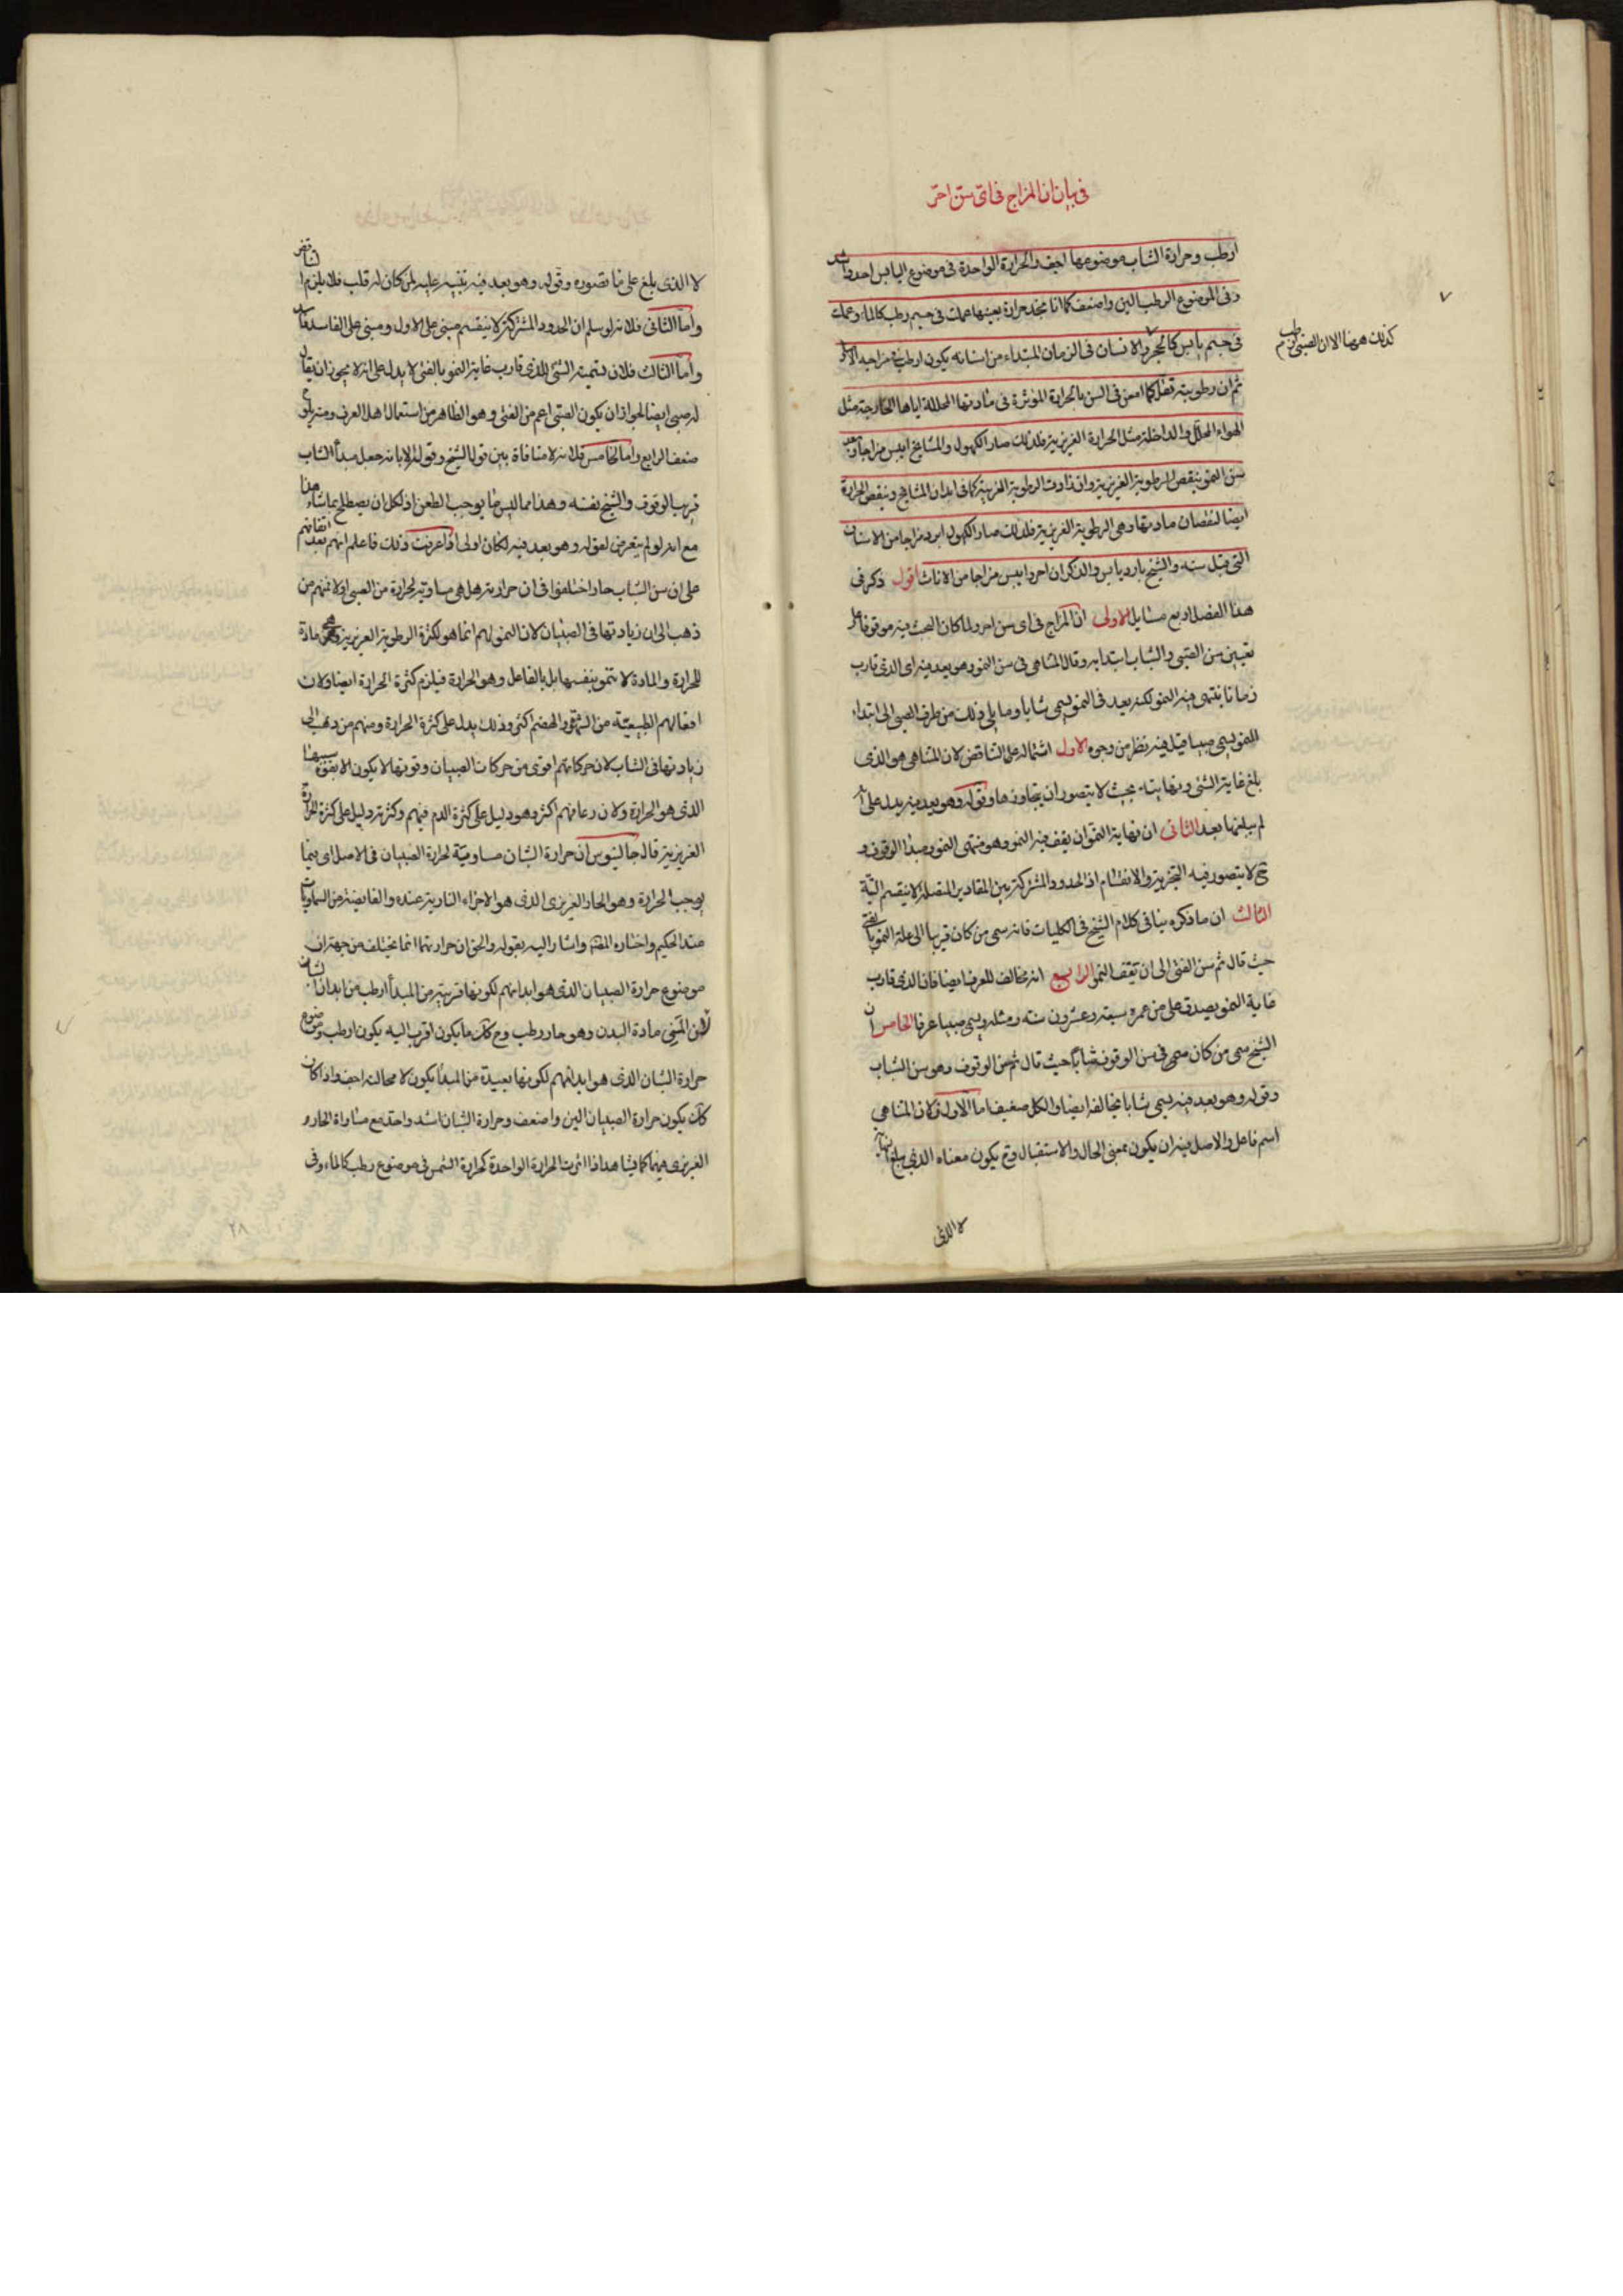 في بيان ان المزاج في اي سن احرّ
ارطب وحرارة الشاب موضوعها اجف والحرارة الواحدة في موضوع اليابس احد واشد
وفي الموضوع الرطب الين واضعف كما انا نجد حرارة بعينها عملت في جسم رطب كالماء وعملت
في جسم يابس كالحجر والانسان في الزمان المبتداء من اسنانه يكون ارطب في مزاجه الاصلي
كذلك هو هنا الان الصبي ارطب م
ثم ان رطوبته تقل كلما امعن في السن بالحرارة المؤثرة في مادتها المحللة اياها الخارجية مثل
الهواء المحلل والداخلة مثل الحرارة الغريزية فلذلك صار الكهول والمشايخ ايبس مزاجا وبعد
سن النمو ينقص الرطوبة الغريزية وان زادت الرطوبة الغريبة كما في ابدان المشايخ وينقص الحرارة
ايضا لنقصان مادتها وهي الرطوبة الغريزية فلذلك صار الكهول ابرد مزاجا من الاسنان
التي قبل سنه والشيخ بارد يابس والذكران احر وايبس مزاجا من الاناث اقول ذكر في
هذا الفصل اربع مسايل الاولى ان المزاج في اي سن احر ولما كان البحث فيه موقوفا على
تعيين سن الصبي والشباب ابتدا به وقال المتناهي في سن النمو وهو بعد فيه اي الذي قارب
زمانا ينتهي فيه النمو لكنه بعد في النمو يسمى شابا وما يلي ذلك من طرف الصبي الى ابتداء
النمو يسمى صبيا قيل فيه نظر من وجوه الاول اشتماله على التناقض لان المتناهي هو الذي
بلغ غاية الشئ ونهايته بحيث لا يتصور ان يتجاوزها وقوله وهو بعد فيه يدل على انه
لم يبلغها بعد الثاني ان نهاية النمو ان يقف فيه النمو وهو منتهى النمو ومبدا الوقوف و
ح لا يتصور فيه التجزية والانقسام اذ الحدود المشتركة بين المقادير المتصلة لا ينقسم البتة
الثالث ان ما ذكره ينافي كلام الشيخ في الكليات فانه سمى من كان قريبا الى علة النمو بالفتى
حيث قال ثم سن الفتى الى ان تقف النمو الرابع انه مخالف للعرف ايضا فان الذي قارب
غاية النمو يصدق على من عمره سبعة وعشرون سنة ومثله لا يسمى صبيا عرفا الخامس ان
الشيخ سمى من كان سمي في سن الوقوف شابا حيث قال ثم سن الوقوف وهو سن الشباب
وقوله وهو بعد فيه يسمى شابا مخالفه ايضا والكل ضعيف اما الاول فلان المتناهي
اسم فاعل والاصل فيه ان يكون بمعنى الحال والاستقبال وح يكون معناه الذي يبلغ نهايته
لا الذي
لا الذي بلغ على ما تصوره وقوله وهو بعد فيه تنبيه عليه لمن كان له قلب فلا يلزم التناقض
واما الثاني فلانه لو سلم ان الحدود المشتركة لا ينقسم مبني على الاول ومبنى على الفاسد فاسد
واما الثالث فلان تسمية الشئ الذي قارب غاية النمو بالفتى لا يدل على انه لا يجوز ان يقال
له صبي ايضا لجواز ان يكون الصبي اعم من الفتى وهو الظاهر من استعمال اهل العرف ومنه يلوح
ضعف الرابع واما الخامس فلانه لا منافاة بين قول الشيخ وقوله الا بانه جعل مبدأ الشاب
قريب الوقوف والشيخ نفسه وهذا مما ليس ما يوجب الطعن اذ لكل ان يصطلح بما شاء هذا
مع انه لو لم يتعرض لقوله وهو بعد فيه لكان اولى اذا عرفت ذلك فاعلم انهم بعد اتفاقهم
على ان سن الشباب حار اختلفوا في ان حرارته هل هي مساوية لحرارة سن الصبي ام لا فمنهم من
ذهب الى ان زيادتها في الصبيان لان النمو لهم انما هو لكثرة الرطوبة الغريزية وهي مادة
للحرارة والمادة لا تنمو بنفسها بل بالفاعل وهو الحرارة فيلزم كثرة الحرارة ايضا ولان
افعالهم الطبيعية من الشهوة والهضم اكثر وذلك يدل على كثرة الحرارة ومنهم من ذهب الى
زيادتها في الشاب لان حركاتهم اقوى من حركات الصبيان وقوتها لا يكون الا بقوة سببها
الذي هو الحرارة ولان رعافهم اكثر وهو دليل على كثرة الدم فيهم وكثرته دليل على كثرة الحرارة
الغريزية قال جالينوس ان حرارة الشبان مساوية لحرارة الصبيان في الاصل اي فيما
يوجب الحرارة وهو الحار الغريزي الذي هو الاجزاء النارية عنده والفايضة من السماويات
عند الحكيم واختاره المصنف واشار اليه بقوله والحق ان حرارتهما انما يختلف من جهة ان
موضوع حرارة الصبيان الذي هو ابدانهم لكونها قريبة من المبدأ ارطب من ابدان الشبان
لان المني مادة البدن وهو حار رطب وح كل ما يكون اقرب اليه يكون ارطب وموضوع
حرارة الشبان الذي هو ابدانهم لكونها بعيدة من المبدا يكون لا محالة اجف واذا كان
كذلك يكون حرارة الصبيان الين واضعف وحرارة الشبان اشد واحد مع مساواة الحار و
الغريزي فيهما كما يشاهد اذا اثرت الحرارة الواحدة كحرارة الشمس في موضوع رطب كالماء وفي
٢٨